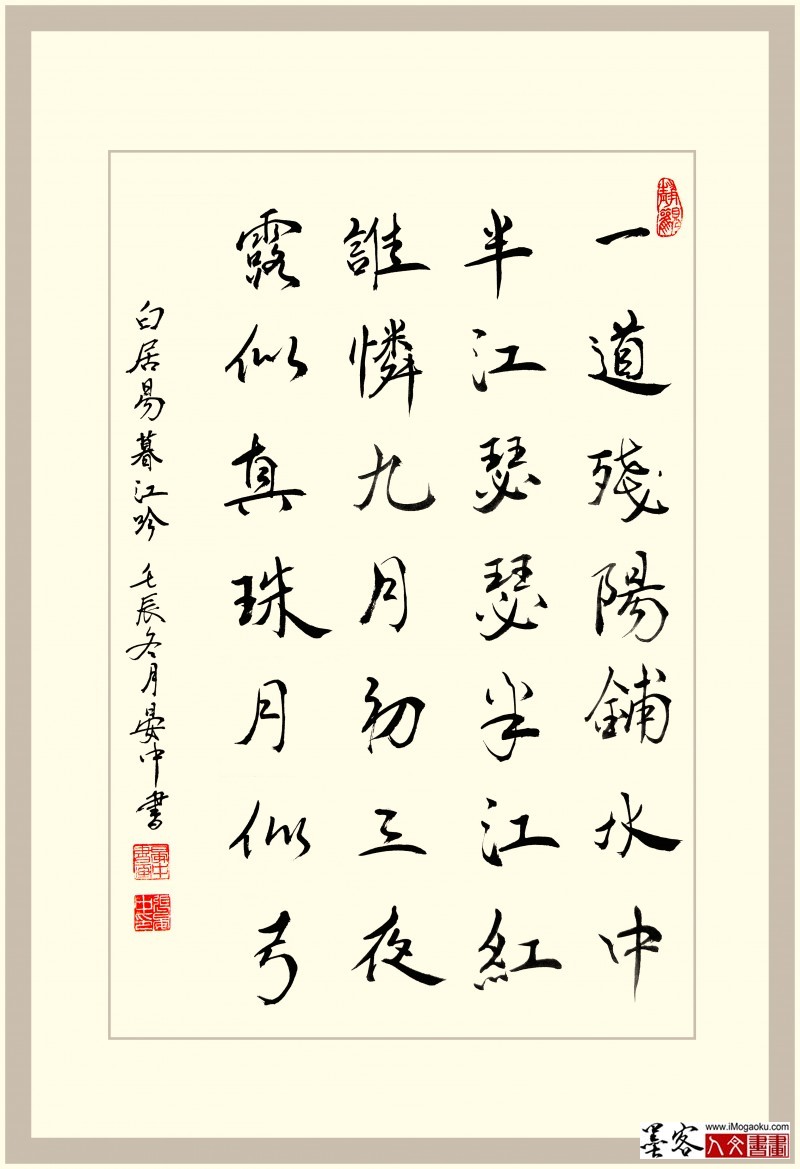 一道殘陽鋪水中
半江瑟瑟半江紅
誰憐九月初三夜
露似真珠月似弓
白居易暮江吟 壬辰冬月晏中書
墨客
www.iMogaoku.com
人文書畫